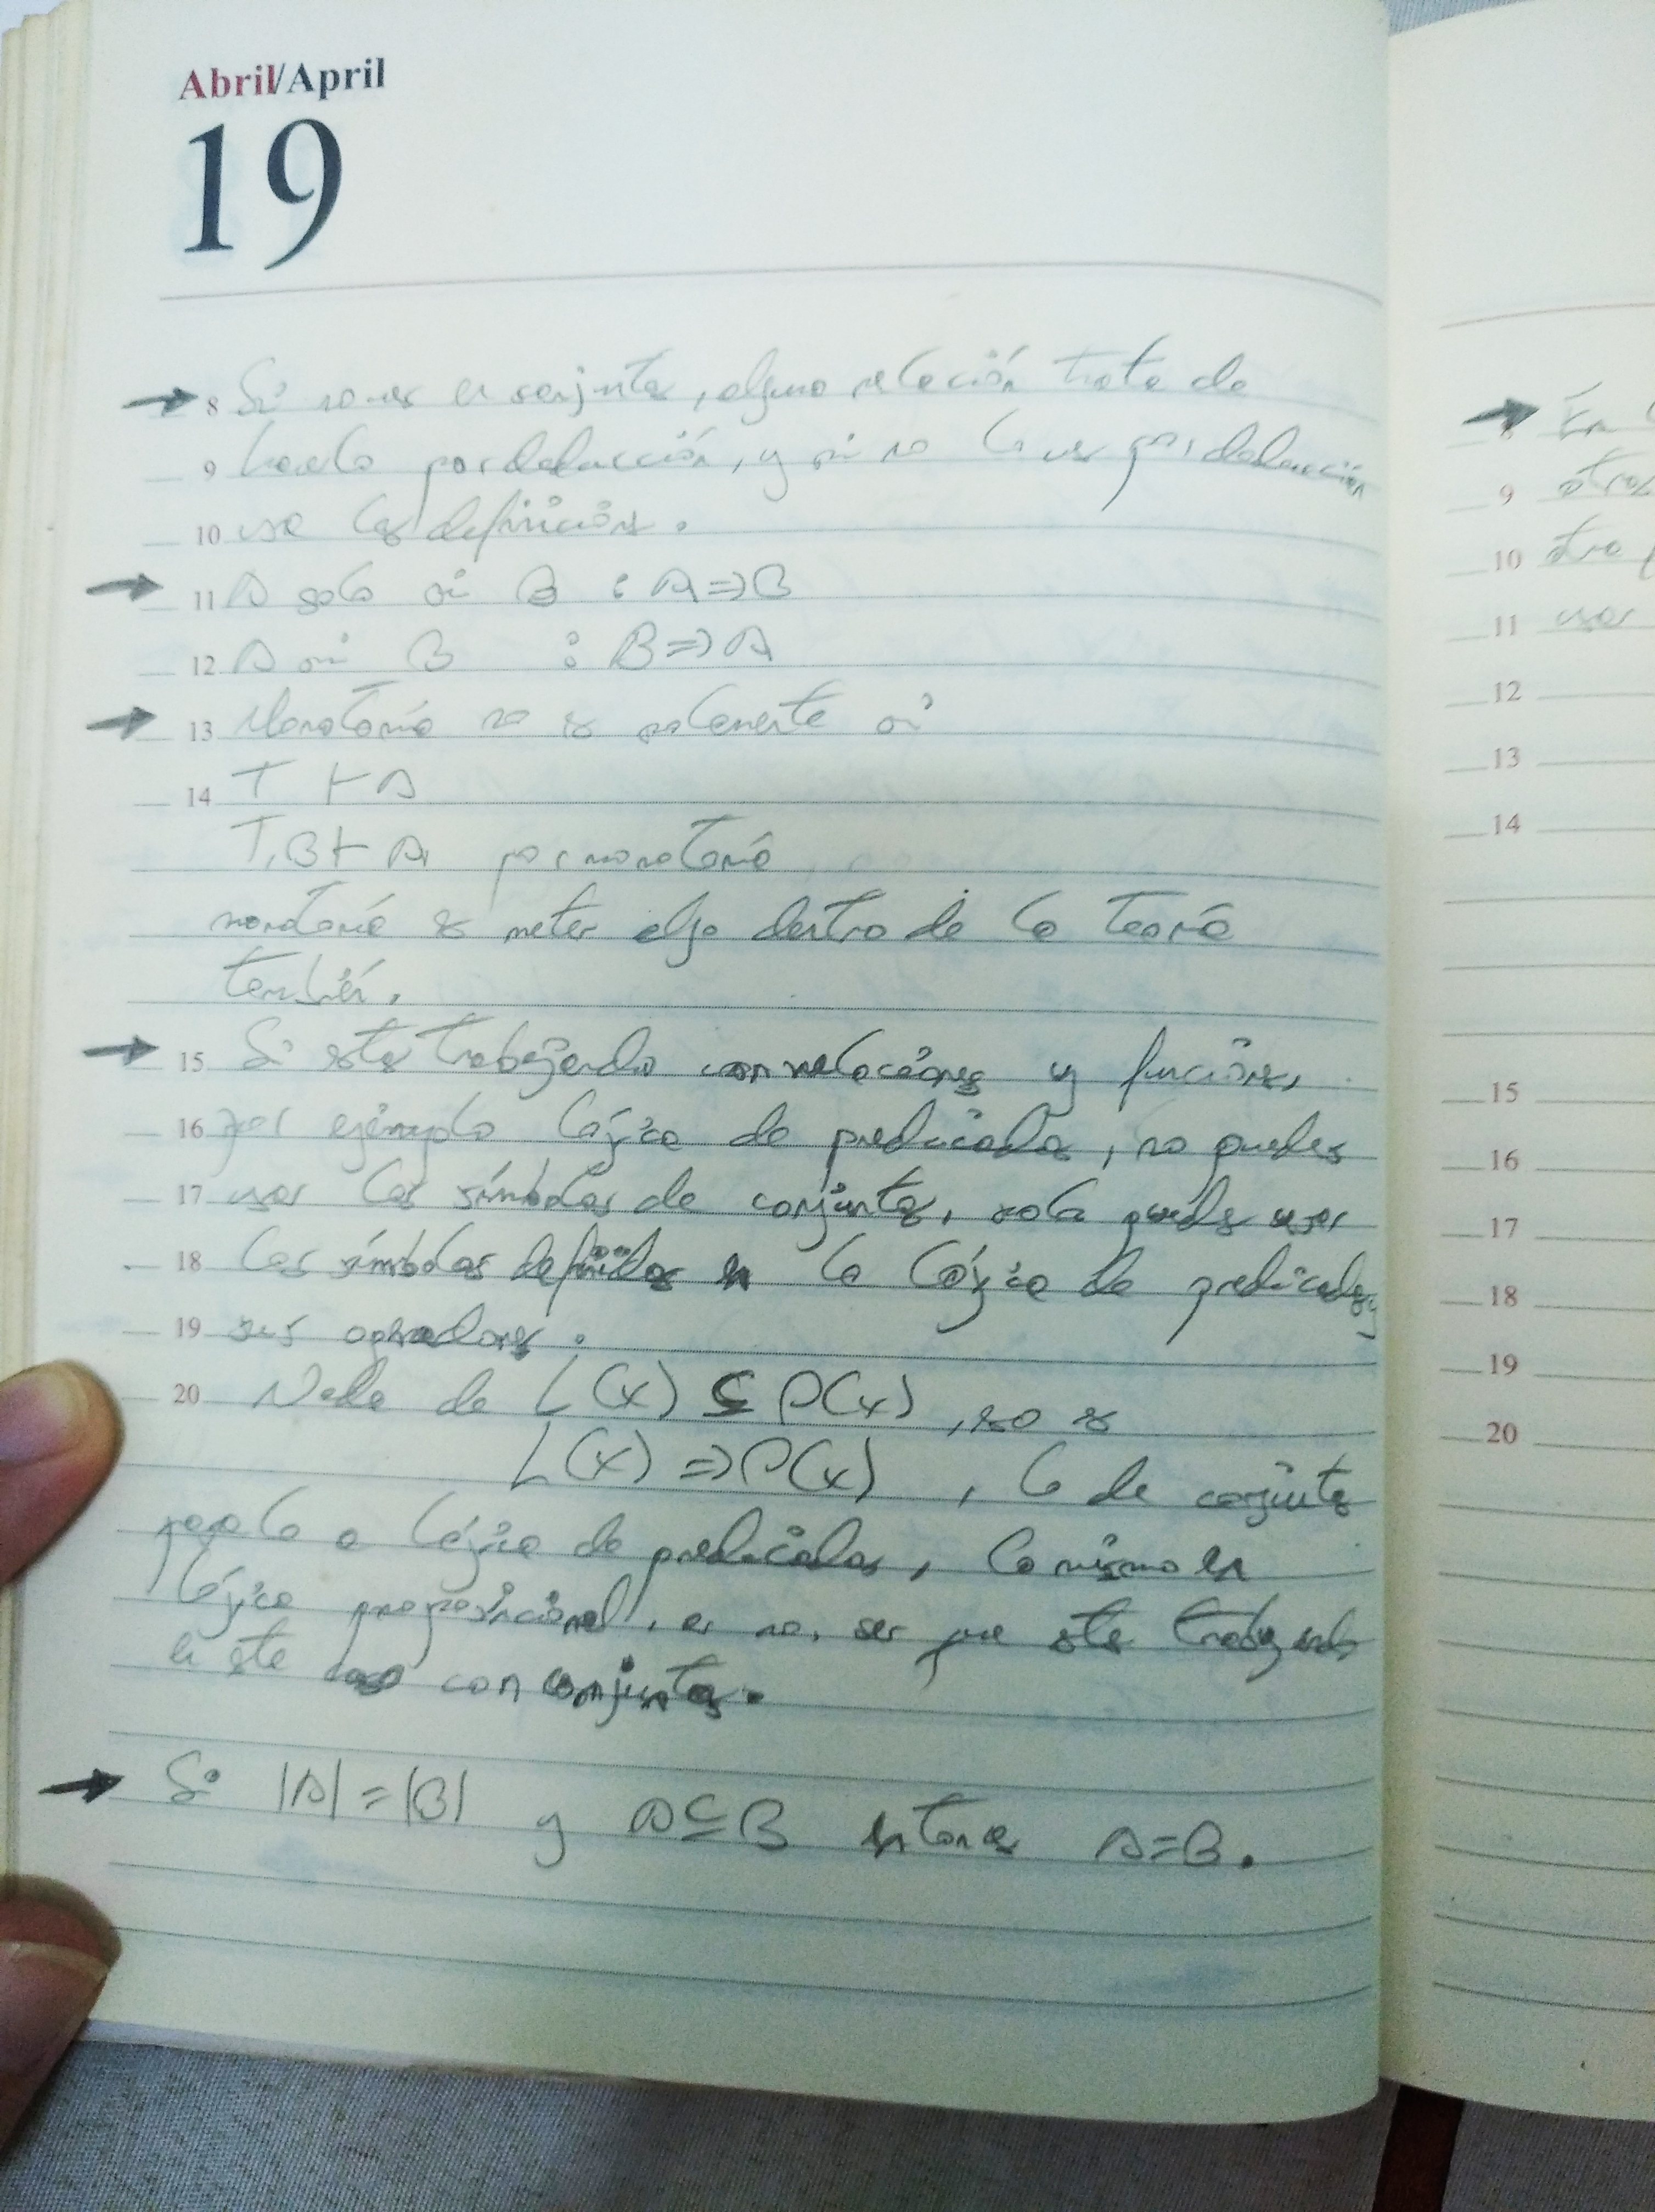 Abril/April
19
→ 8 Si no ves en conjuntos, alguna relación trata de
9 hacerlo por deducción, y si no lo ves por deducción
10 usa las definiciones.
→ 11 A solo si B : A => B
12 A si B : B => A
→ 13 Monotonía no es solamente si
14 T ⊢ A
T, B ⊢ A por monotonía
monotonía es meter algo dentro de la teoría
también.
→ 15 Si estas trabajando con relaciones y funciones,
16 por ejemplo lógica de predicados, no puedes
17 usar los símbolos de conjuntos, solo puedes usar
18 los símbolos definidos en la lógica de predicados y
19 sus operadores.
20 Nada de L(x) ⊆ P(x), eso es
L(x) => P(x), lo de conjuntos
pasalo a lógica de predicados, lo mismo en
lógica proposicional, a no ser que estes trabajando
en este caso con conjuntos.
→ Si |A| = |B| y A ⊆ B entonces A = B.
→ En
9
10 otro
11 usar
12
13
14
15
16
17
18
19
20